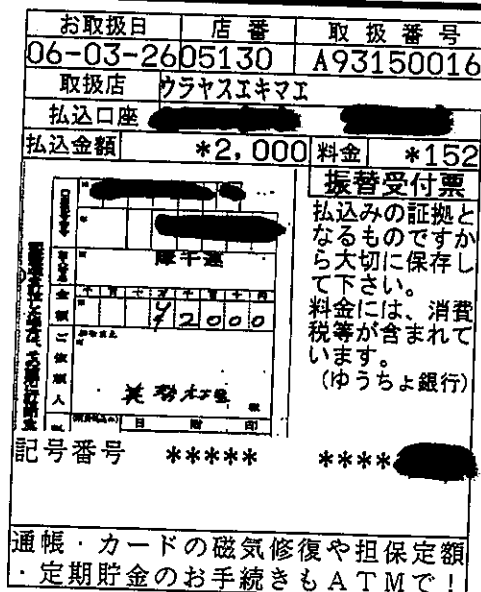 お取扱日 店番 取扱番号
06-03-26 05130 A93150016
取扱店 ウラヤスエキマエ
払込口座
払込金額 *2,000 料金 *152
振替受付票
払込みの証拠と
なるものですか
ら大切に保存し
て下さい。
料金には、消費
税等が含まれて
います。
(ゆうちょ銀行)
障千連
千 百 十 万 千 百 十 円
2000
金額
ご依頼人
日 附 印
記号番号 ***** ****
通帳・カードの磁気修復や担保定額
・定期貯金のお手続きもATMで!